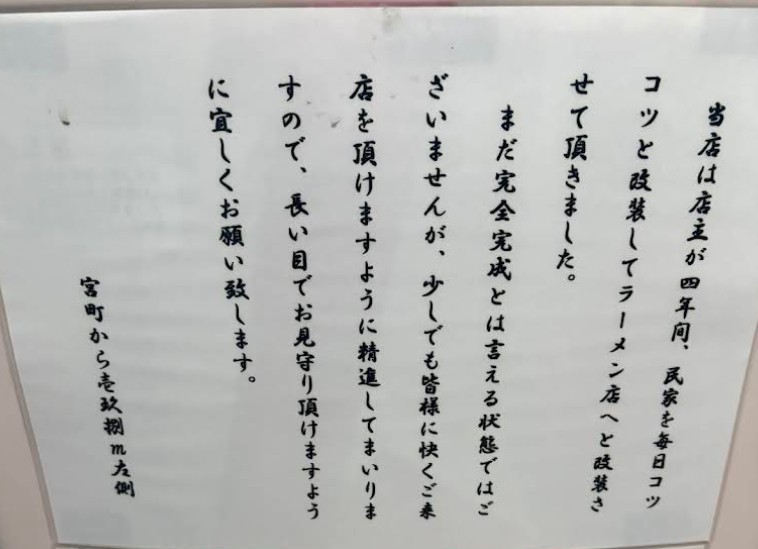 当店は店主が四年間、民家を毎日コツ
コツと改装してラーメン店へと改装さ
せて頂きました。
まだ完全完成とは言える状態ではご
ざいませんが、少しでも皆様に快くご来
店を頂けますように精進してまいりま
すので、長い目でお見守り頂けますよう
に宜しくお願い致します。
宮町から壱玖捌m左側